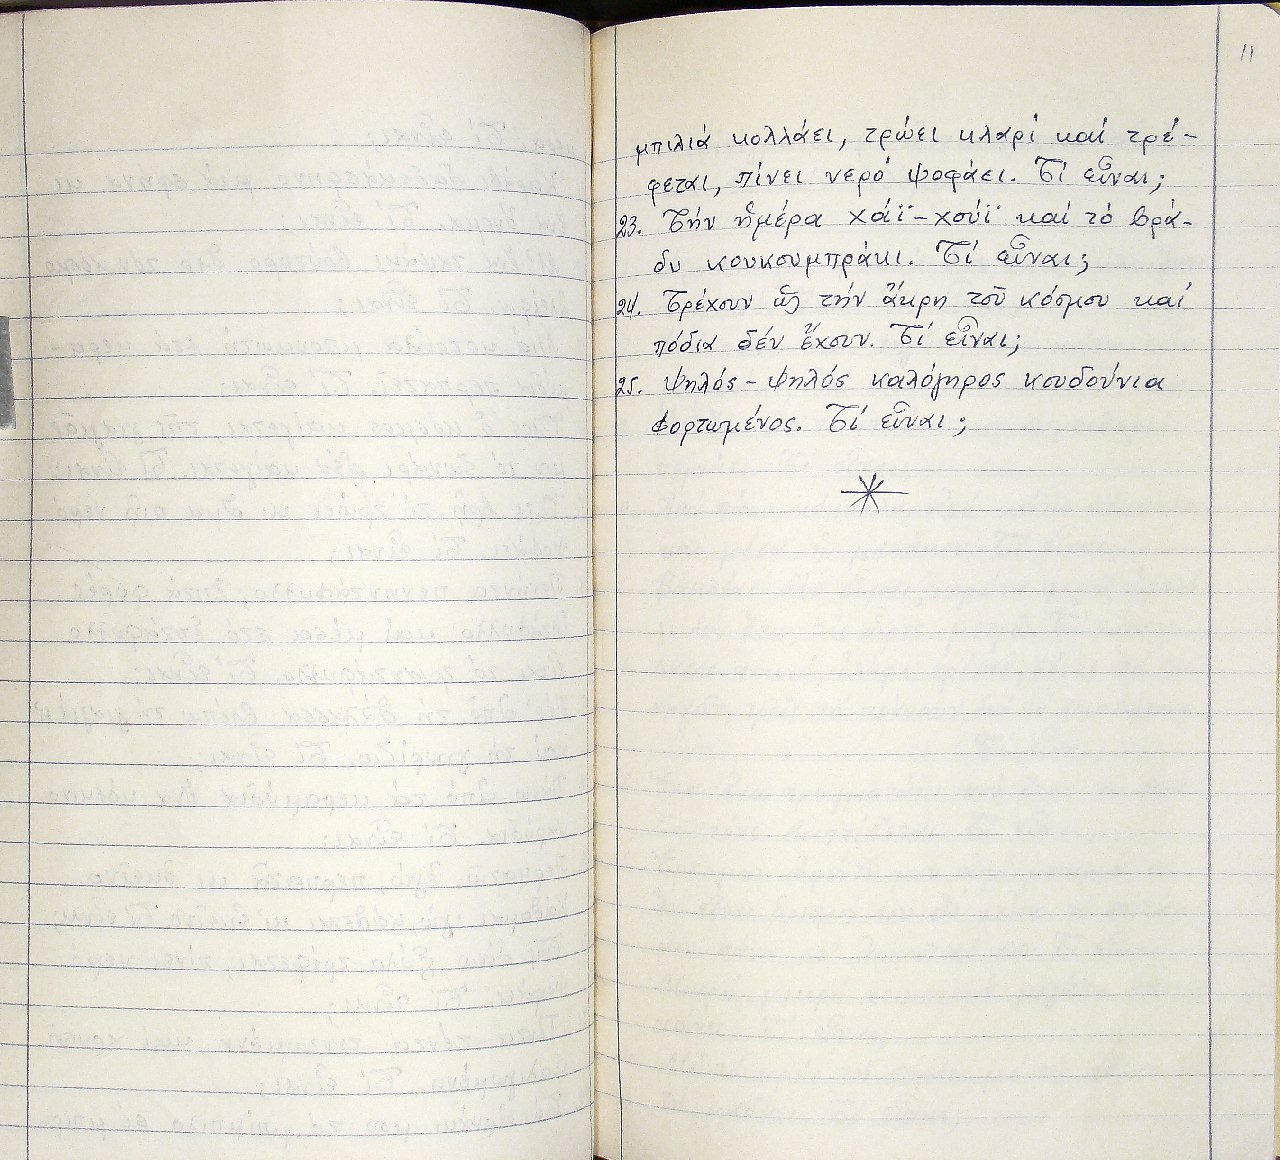 11
μπιλιά κολλάει, τρώει κλαρί καί τρέ-
φεται, πίνει νερό ψοφάει. Τί εἶναι;
23. Τήν ἡμέρα χάϊ-χούϊ καί τό βρά-
δυ κουκουμπράκι. Τί εἶναι;
24. Τρέχουν ὥς τήν ἄκρη τοῦ κόσμου καί
πόδια δέν ἔχουν. Τί εἶναι;
25. Ψηλός-ψηλός καλόγηρος κουδούνια
φορτωμένος. Τί εἶναι;